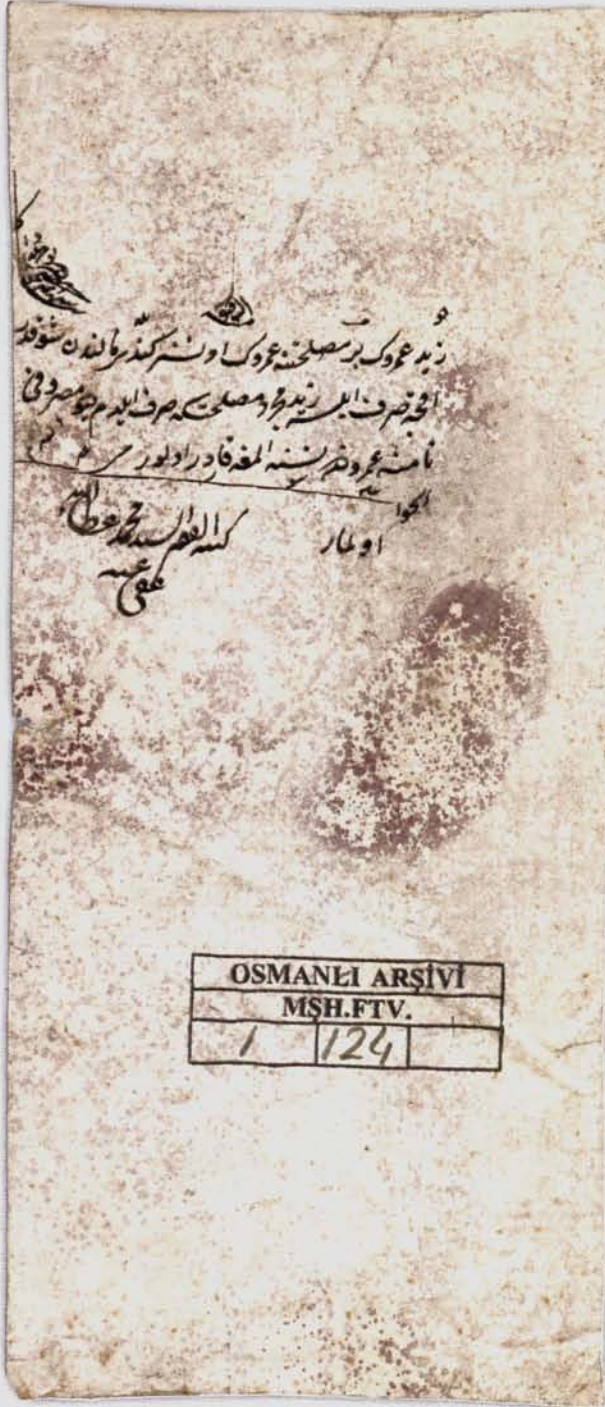 زيد عمروك بر مصلحتنه عمروك اذنسز كندى مالندن شو قدر
اقچه صرف ايلسه زيد مجرد مصلحتكه صرف ايلدم ديو مصروفى
نامنه عمرودن نسنه المغه قادر اولور مى
الجواب
اولماز
كتبه الفقير السيد محمد عطاءالله
عفى عنه
OSMANLI ARŞİVİ
MŞH.FTV.
1 124